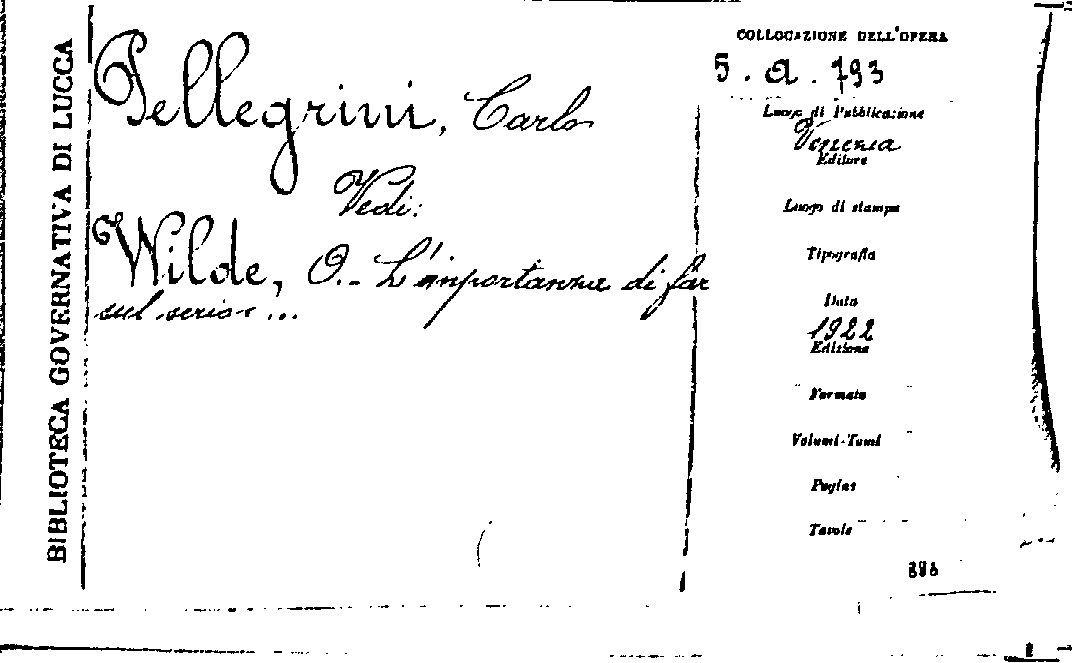 BIBLIOTECA GOVERNATIVA DI LUCCA
Pellegrini, Carlo
Vedi:
Wilde, O. - L'importanza di far
sul serio ...
COLLOCAZIONE DELL'OPERA
5. a. 793
Luogo di Pubblicazione
Venezia
Editore
Luogo di stampa
Tipografia
Data
1922
Edizione
Formato
Volumi-Tomi
Pagine
Tavole